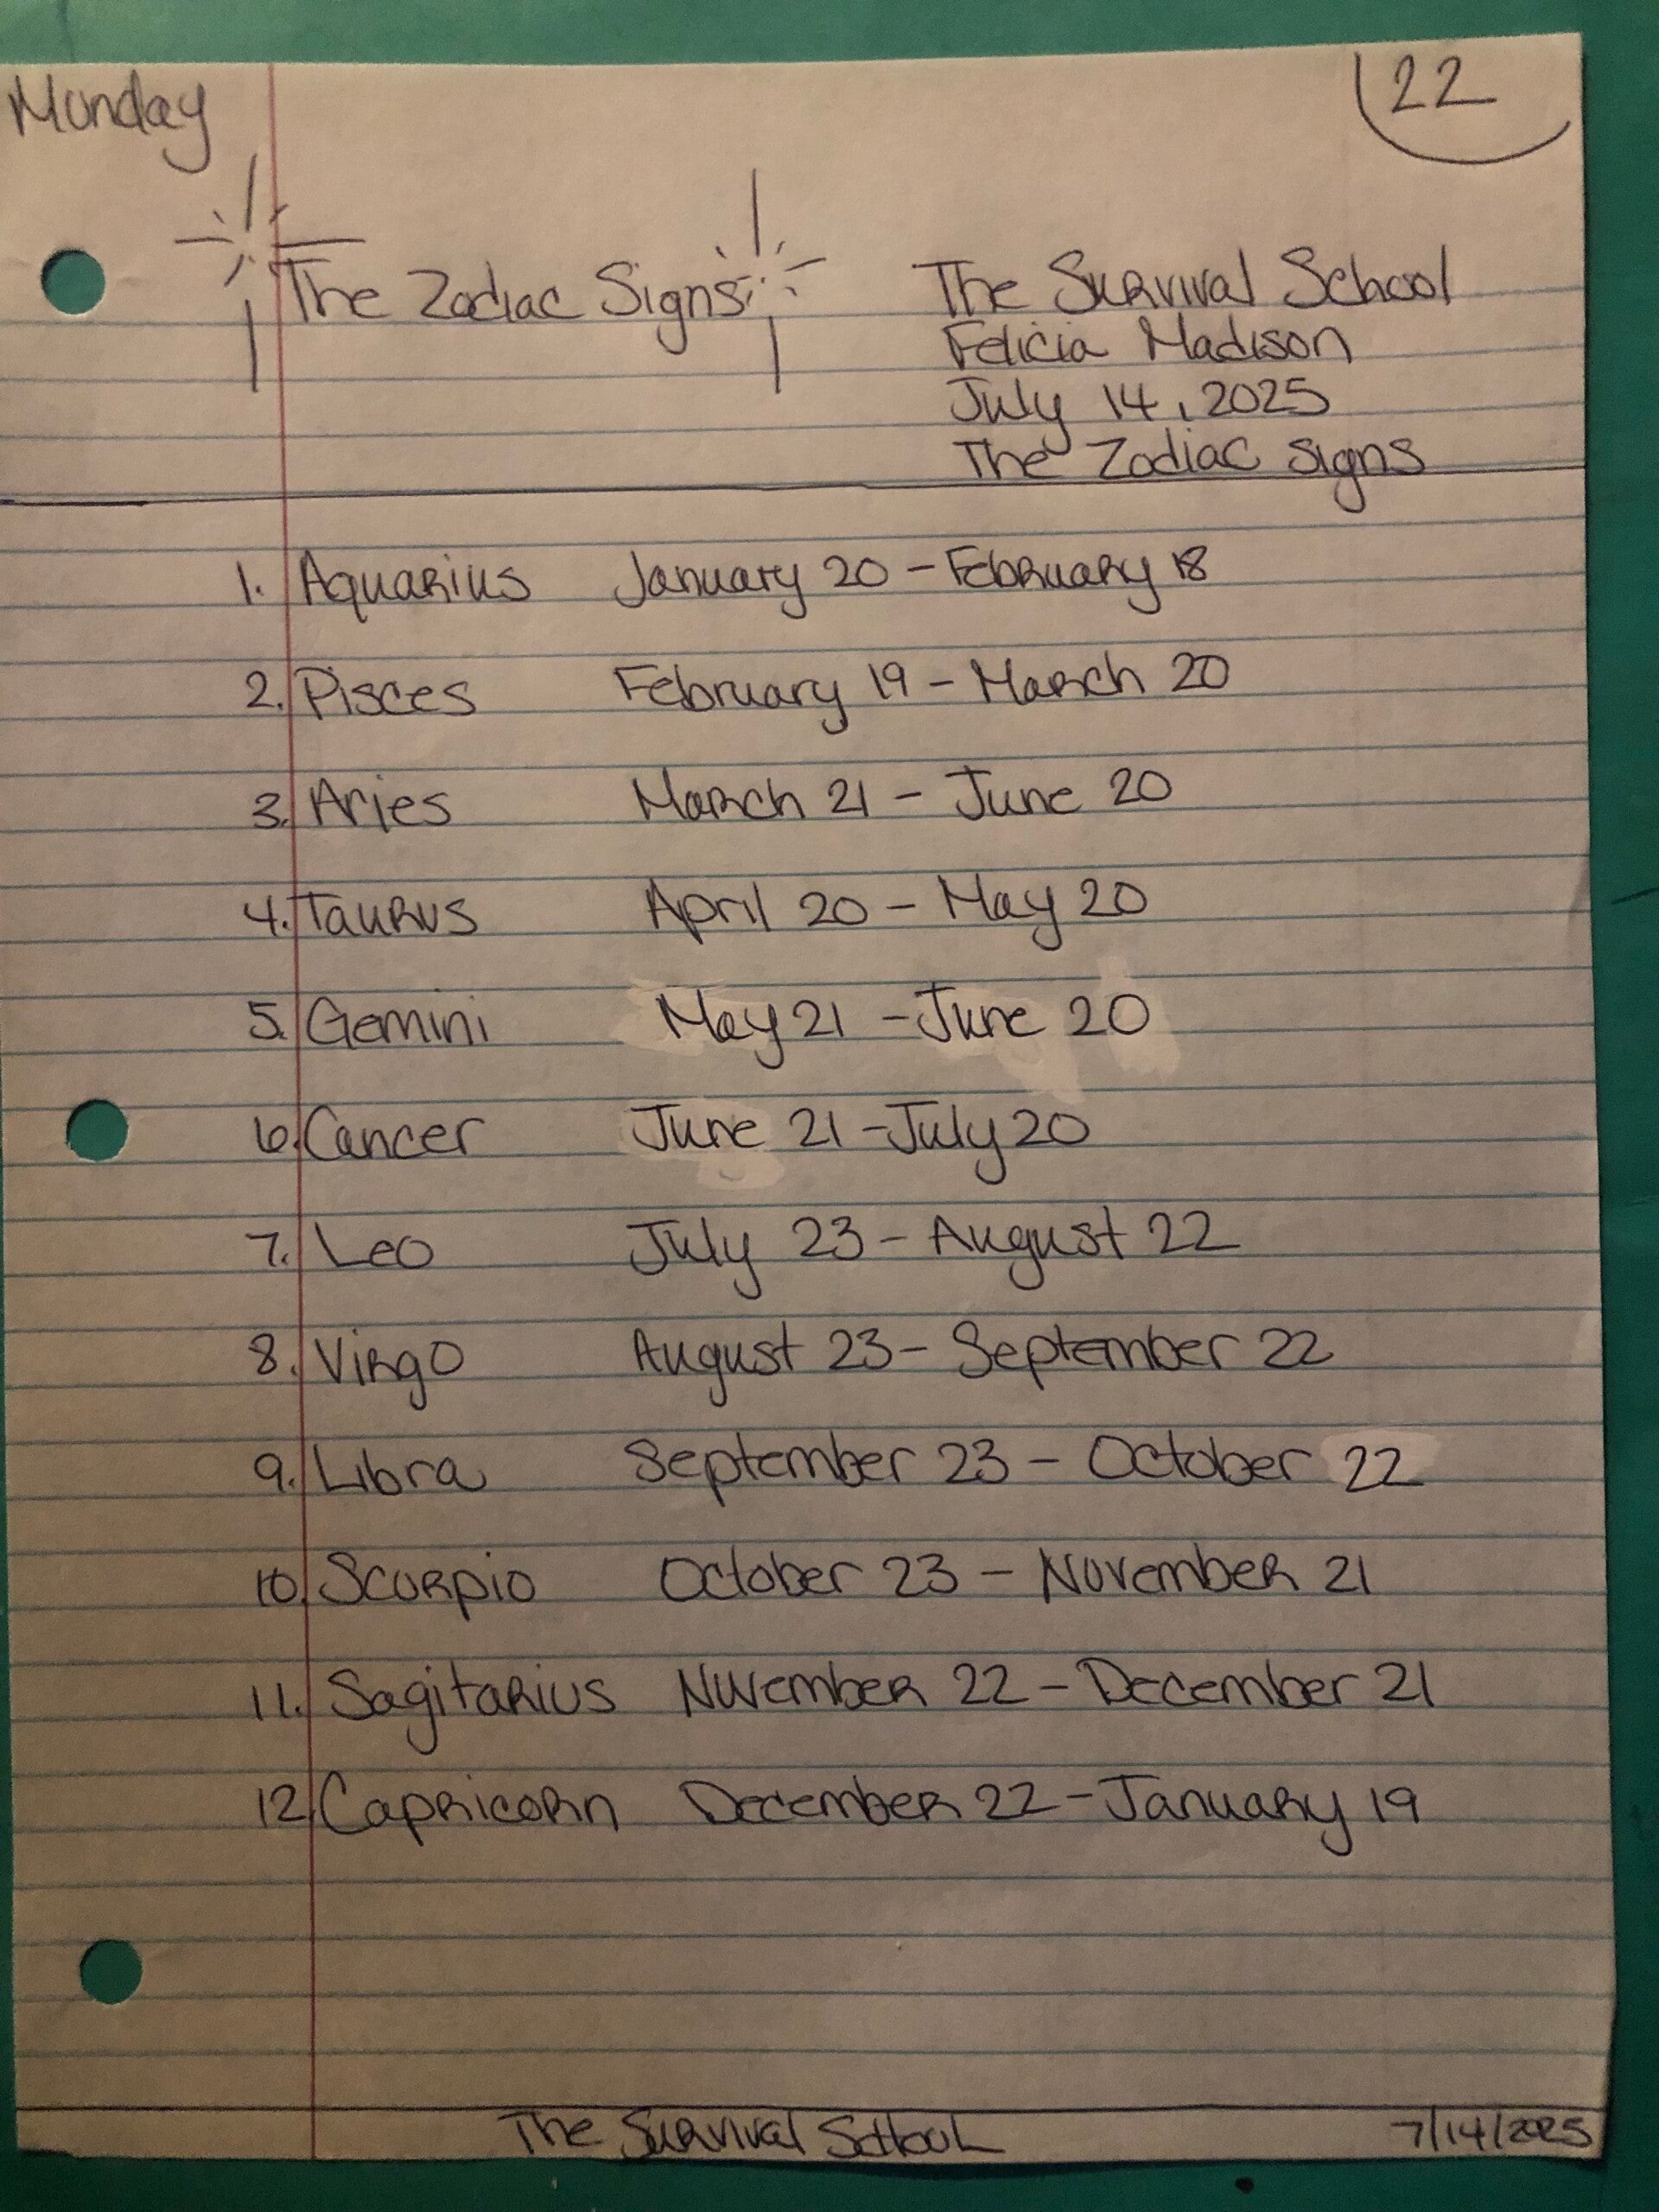 Monday
22
The Zodiac Signs
The Survival School
Felicia Madison
July 14, 2025
The Zodiac Signs
1. Aquarius January 20 - February 18
2. Pisces February 19 - March 20
3. Aries March 21 - June 20
4. Taurus April 20 - May 20
5. Gemini May 21 - June 20
6. Cancer June 21 - July 20
7. Leo July 23 - August 22
8. Virgo August 23 - September 22
9. Libra September 23 - October 22
10. Scorpio October 23 - November 21
11. Sagitarius November 22 - December 21
12. Capricorn December 22 - January 19
The Survival School 7/14/2025